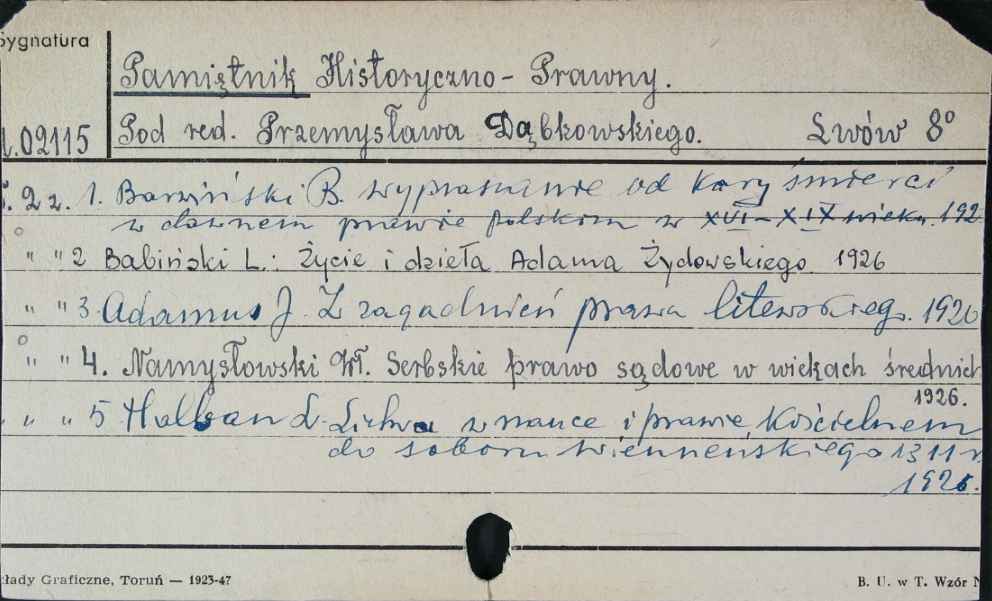 Sygnatura
Pamiętnik Historyczno-Prawny.
02115 Pod red. Przemysława Dąbkowskiego. Lwów 8°
T. 2 z. 1. B. wyprasznie od kary śmierci
w dawnem prawie polskim w XVI-XIX wieku. 192
" " 2 Babiński L.: Życie i dzieła Adama Żydowskiego 1926
" " 3 Adamus J. Z zagadnień prawa litewskieg. 1926
" " 4. Namysłowski Wł. Serbskie prawo sądowe w wiekach średnich
1926.
" " 5 Halban L. Lichwa w nauce i prawie Kościelnem
do soboru wienneńskiego 1311 r
1926.
kłady Graficzne, Toruń — 1923-47
B. U. w T. Wzór N